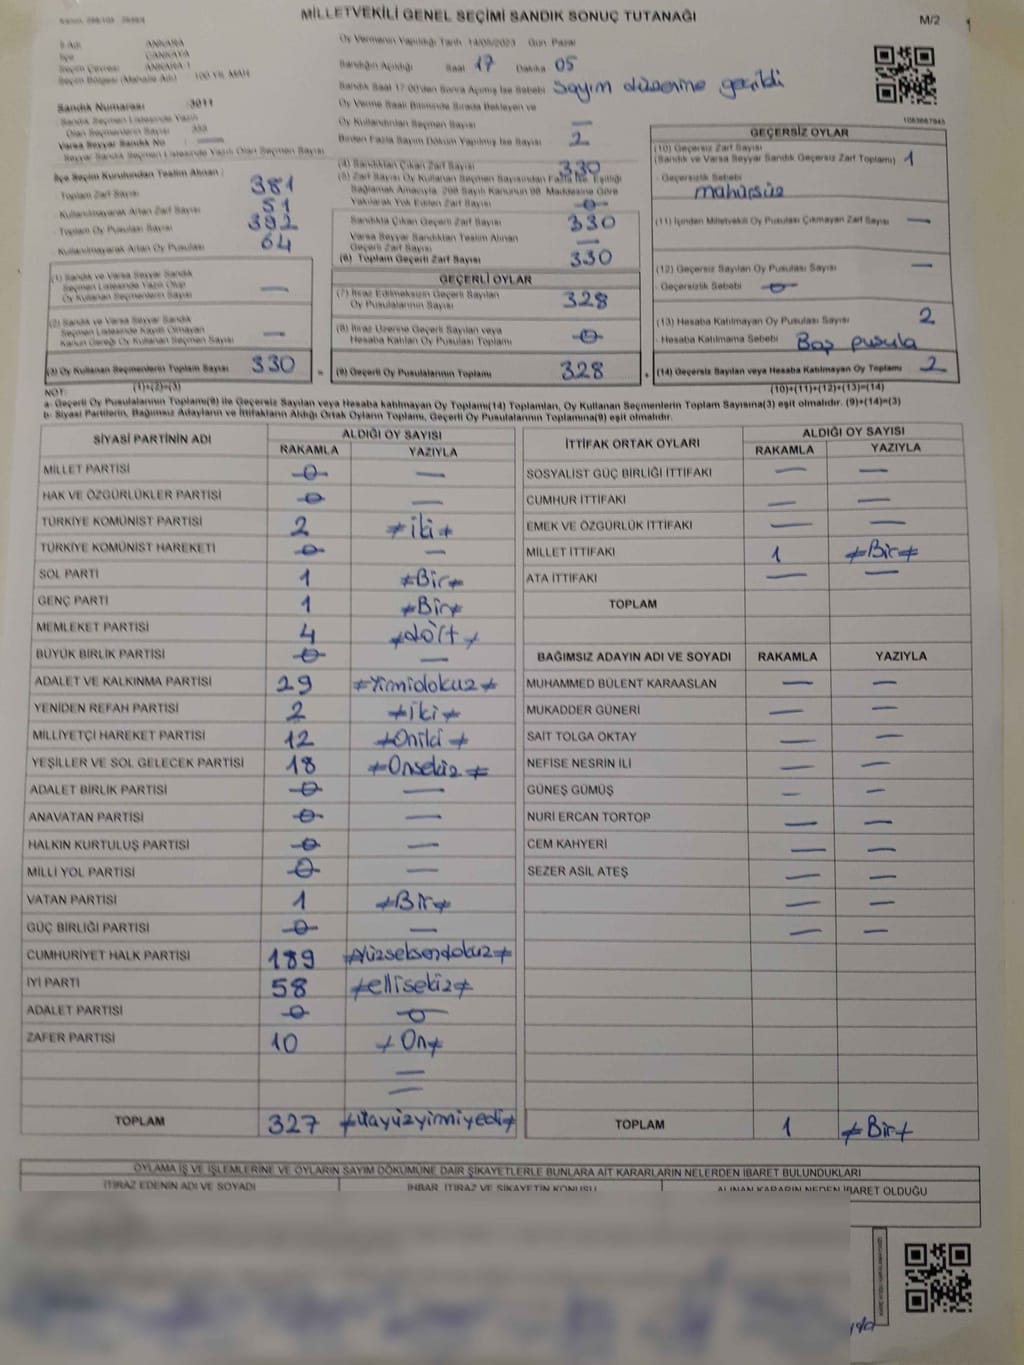 MİLLETVEKİLİ GENEL SEÇİMİ SANDIK SONUÇ TUTANAĞI
M/2
1
İl Adı ANKARA
İlçe ÇANKAYA
Seçim Çevresi ANKARA 1
Seçim Bölgesi (Mahalle Adı) 100 YIL MAH
Sandık Numarası 3011
Sandık Seçmen Listesinde Yazılı
Olan Seçmenlerin Sayısı 353
Varsa Seyyar Sandık No
Seyyar Sandık Seçmen Listesinde Yazılı Olan Seçmen Sayısı
İlçe Seçim Kurulundan Teslim Alınan :
Toplam Zarf Sayısı 381
Kullanılmayarak Artan Zarf Sayısı 51
Toplam Oy Pusulası Sayısı 392
Kullanılmayarak Artan Oy Pusulası 64
(1) Sandık ve Varsa Seyyar Sandık
Seçmen Listesinde Yazılı Olup
Oy Kullanan Seçmenlerin Sayısı —
(2) Sandık ve Varsa Seyyar Sandık
Seçmen Listesinde Kayıtlı Olmayan
Kanun Gereği Oy Kullanan Seçmen Sayısı —
(3) Oy Kullanan Seçmenlerin Toplam Sayısı 330
(1)+(2)=(3)
Oy Vermenin Yapıldığı Tarih 14/05/2023 Gün Pazar
Sandığın Açıldığı Saat 17 Dakika 05
Sandık Saat 17.00'den Sonra Açılmış İse Sebebi Sayım düzenine geçildi
Oy Verme Saati Bitiminde Sırada Bekleyen ve
Oy Kullandırılan Seçmen Sayısı —
Birden Fazla Sayım Döküm Yapılmış İse Sayısı 2
(4) Sandıktan Çıkan Zarf Sayısı 330
(5) Zarf Sayısı Oy Kullanan Seçmen Sayısından Fazla İse, Eşitliği
Sağlamak Amacıyla, 298 Sayılı Kanunun 98. Maddesine Göre
Yakılarak Yok Edilen Zarf Sayısı 0
Sandıkta Çıkan Geçerli Zarf Sayısı 330
Varsa Seyyar Sandıktan Teslim Alınan
Geçerli Zarf Sayısı —
(6) Toplam Geçerli Zarf Sayısı 330
GEÇERLİ OYLAR
(7) İtiraz Edilmeksizin Geçerli Sayılan
Oy Pusulalarının Sayısı 328
(8) İtiraz Üzerine Geçerli Sayılan veya
Hesaba Katılan Oy Pusulaları Toplamı 0
= (9) Geçerli Oy Pusulalarının Toplamı 328
1083667945
GEÇERSİZ OYLAR
(10) Geçersiz Zarf Sayısı
(Sandık ve Varsa Seyyar Sandık Geçersiz Zarf Toplamı) 1
- Geçersizlik Sebebi
mühürsüz
(11) İçinden Milletvekili Oy Pusulası Çıkmayan Zarf Sayısı —
(12) Geçersiz Sayılan Oy Pusulası Sayısı —
- Geçersizlik Sebebi 0
(13) Hesaba Katılmayan Oy Pusulası Sayısı 2
- Hesaba Katılmama Sebebi Boş pusula
+ (14) Geçersiz Sayılan veya Hesaba Katılmayan Oy Toplamı 2
(10)+(11)+(12)+(13)=(14)
NOT:
a- Geçerli Oy Pusulalarının Toplamı(9) ile Geçersiz Sayılan veya Hesaba katılmayan Oy Toplamı(14) Toplamları, Oy Kullanan Seçmenlerin Toplam Sayısına(3) eşit olmalıdır. (9)+(14)=(3)
b- Siyasi Partilerin, Bağımsız Adayların ve İttifakların Aldığı Ortak Oyların Toplamı, Geçerli Oy Pusulalarının Toplamına(9) eşit olmalıdır.
SİYASİ PARTİNİN ADI ALDIĞI OY SAYISI
RAKAMLA YAZIYLA
MİLLET PARTİSİ 0 —
HAK VE ÖZGÜRLÜKLER PARTİSİ 0 —
TÜRKİYE KOMÜNİST PARTİSİ 2 ≠iki≠
TÜRKİYE KOMÜNİST HAREKETİ 0 —
SOL PARTİ 1 ≠Bir≠
GENÇ PARTİ 1 ≠Bir≠
MEMLEKET PARTİSİ 4 ≠dört≠
BÜYÜK BİRLİK PARTİSİ 0 —
ADALET VE KALKINMA PARTİSİ 29 ≠Yirmidokuz≠
YENİDEN REFAH PARTİSİ 2 ≠iki≠
MİLLİYETÇİ HAREKET PARTİSİ 12 ≠Oniki≠
YEŞİLLER VE SOL GELECEK PARTİSİ 18 ≠Onsekiz≠
ADALET BİRLİK PARTİSİ 0 —
ANAVATAN PARTİSİ 0 —
HALKIN KURTULUŞ PARTİSİ 0 —
MİLLİ YOL PARTİSİ 0 —
VATAN PARTİSİ 1 ≠Bir≠
GÜÇ BİRLİĞİ PARTİSİ 0 —
CUMHURİYET HALK PARTİSİ 189 ≠Yüzseksendokuz≠
İYİ PARTİ 58 ≠ellisekiz≠
ADALET PARTİSİ 0 0
ZAFER PARTİSİ 10 ≠On≠
—
—
TOPLAM 327 ≠üçyüzyirmiyedi≠
İTTİFAK ORTAK OYLARI ALDIĞI OY SAYISI
RAKAMLA YAZIYLA
SOSYALİST GÜÇ BİRLİĞİ İTTİFAKI — —
CUMHUR İTTİFAKI — —
EMEK VE ÖZGÜRLÜK İTTİFAKI — —
MİLLET İTTİFAKI 1 ≠Bir≠
ATA İTTİFAKI — —
TOPLAM
BAĞIMSIZ ADAYIN ADI VE SOYADI RAKAMLA YAZIYLA
MUHAMMED BÜLENT KARAASLAN — —
MUKADDER GÜNERİ — —
SAİT TOLGA OKTAY — —
NEFİSE NESRİN İLİ — —
GÜNEŞ GÜMÜŞ — —
NURİ ERCAN TORTOP — —
CEM KAHYERİ — —
SEZER ASİL ATEŞ — —
— —
— —
TOPLAM 1 ≠Bir≠
OYLAMA İŞ VE İŞLEMLERİNE VE OYLARIN SAYIM DÖKÜMÜNE DAİR ŞİKAYETLERLE BUNLARA AİT KARARLARIN NELERDEN İBARET BULUNDUKLARI
İTİRAZ EDENİN ADI VE SOYADI İHBAR, İTİRAZ VE ŞİKAYETİN KONUSU ALINAN KARARIN NEDEN İBARET OLDUĞU